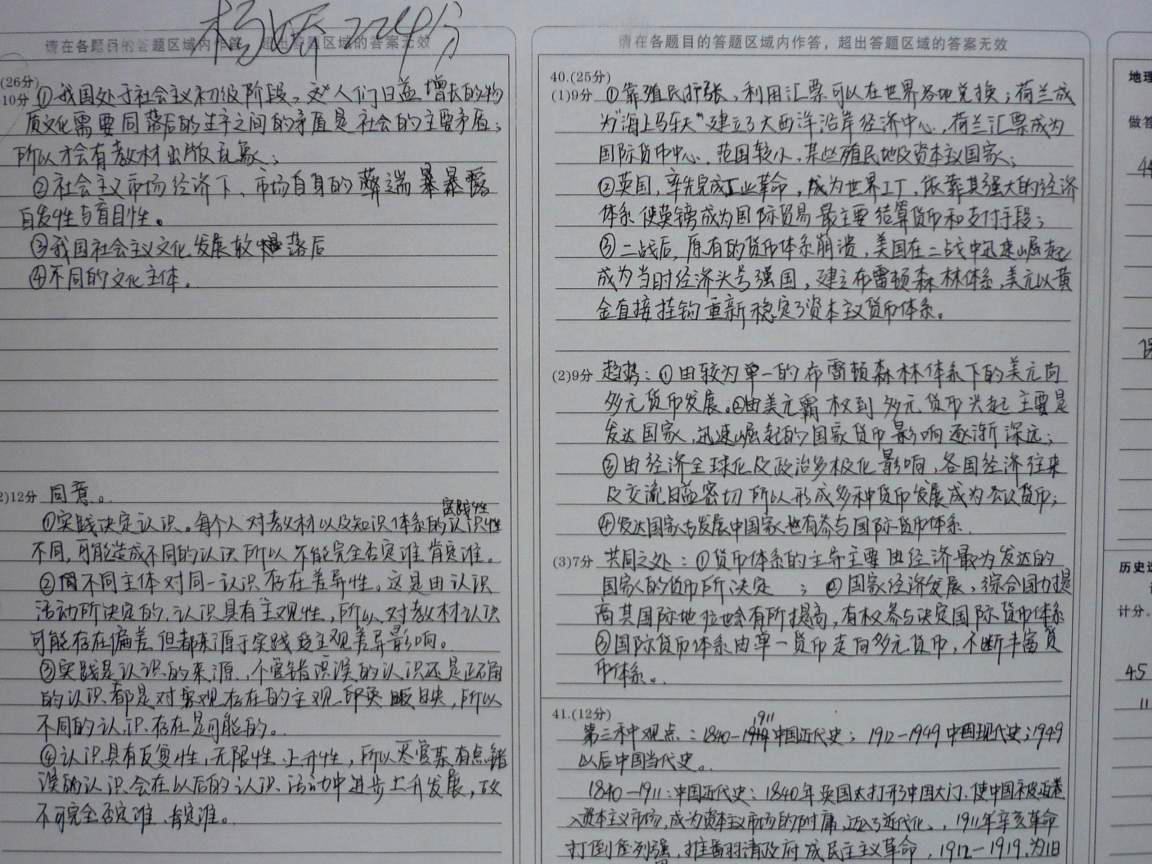 杨娇 224分
请在各题目的答题区域内作答，超出答题区域的答案无效
(26分)
10分 ①我国处于社会主义初级阶段。人们日益增长的物
质文化需要同落后的生产之间的矛盾是社会的主要矛盾；
所以才会有教材出版乱象；
②社会主义市场经济下、市场自身的弊端暴露
自发性与盲目性。
③我国社会主义文化发展较落后
④不同的文化主体。
2)12分 同意。
①实践决定认识。每个人对教材以及知识体系的实践性
不同，可能造成不同的认识所以不能完全否定谁肯定谁。
②不同主体对同一认识存在差异性。这是由认识
活动所决定的，认识具有主观性，所以对教材认识
可能存在偏差但都来源于实践受主观差异影响。
③实践是认识的来源，不管错误的认识还是正确
的认识都是对客观存在的主观印映，所以
不同的认识存在是可能的。
④认识具有反复性，无限性、上升性，所以尽管某有点错
误的认识会在以后的认识活动中进步上升发展，故
不可完全否定谁、肯定谁。
请在各题目的答题区域内作答，超出答题区域的答案无效
40.(25分)
(1)9分 ①靠殖民扩张、利用汇票可以在世界各地兑换；荷兰成
为“海上马车夫”建立了大西洋沿岸经济中心，荷兰汇票成为
国际货币中心，范围较小、某些殖民地及资本主义国家；
②英国，率先完成工业革命，成为世界工厂，依靠其强大的经济
体系使英镑成为国际贸易最主要结算货币和支付手段；
③二战后，原有的货币体系崩溃，美国在二战中迅速崛起
成为当时经济头号强国，建立布雷顿森林体系，美元以黄
金直接挂钩重新稳定了资本主义货币体系。
(2)9分 趋势：①由较为单一的布雷顿森林体系下的美元向
多元货币发展。②由美元霸权到多元货币兴起主要是
发达国家、迅速崛起的国家货币影响逐渐深远；
③由经济全球化及政治多极化影响，各国经济往来
及交流日益密切所以形成多种货币发展成为公认货币；
④发达国家与发展中国家也有参与国际货币体系
(3)7分 共同之处：①货币体系的主导主要由经济最为发达的
国家的货币所决定；②国家经济发展，综合国力提
高其国际地位也会有所提高，有权参与决定国际货币体系
③国际货币体系由单一货币走向多元货币，不断丰富货
币体系。
41.(12分)
第三种观点：1840-1911中国近代史；1912-1949中国现代史；1949
以后中国当代史。
1840-1911：中国近代史：1840年英国大打开中国大门，使中国不被迫卷
入资本主义市场，成为资本主义市场的附庸，迈入了近代化、，1911年辛亥革命
打倒列强，推翻清政府成民主主义革命，1912-1919，为旧
地理
做答
44
历史
计分.
45
11